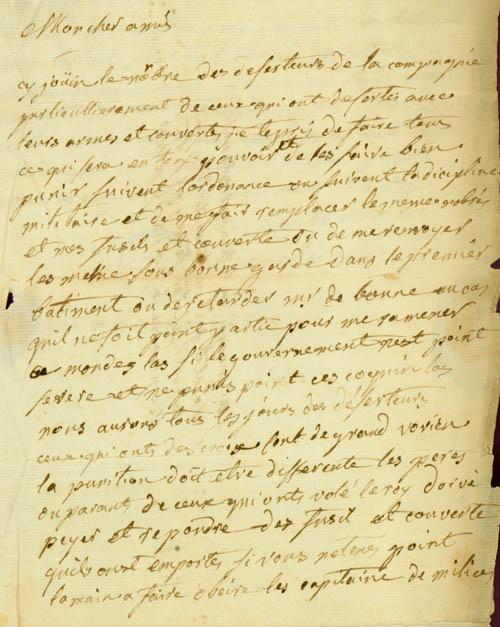 Moncher amis
cy joüin le nôbre des deserteurs de la compagnie
particullierement de ceux qui ont desertés avec
leurs armes et couvertes je te prÿ de faire tous
ce qui sera en ton pouvoir et de les faire bien
punir suivent lordonance ou suivent la discipline
militaire et de me fair remplacer le meme nobre
et mes fusils et couverte ou de me renvoyer
les meme sous bonne garde dans le premier
batiment ou de retarder mr de bonne au cas
quil ne soit point partie pour me ramener
mondes las si le gouvernement nest point
severe et ne punis point ces coquin las
nous aurons tous les jours des déserteurs
ceux qui onts des croix sont de grand vorien
la punition doit etre differente les peres
ou parans de ceux qui onts volé le roy doive
peyer et repondre des fusil et couverte
quils onst emportes si vous netenés point
la main a faire obeire les capitaine de milice